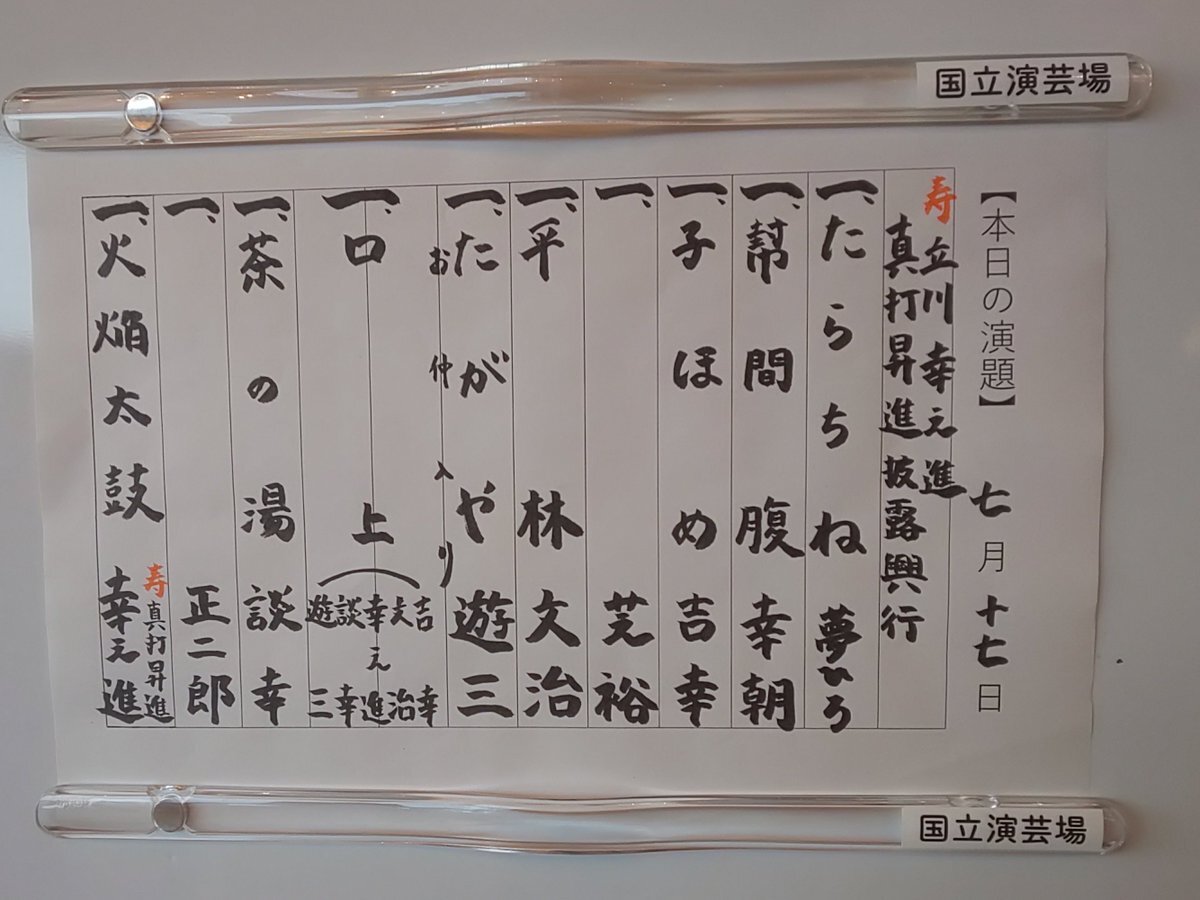 国立演芸場
【本日の演題】 七月十七日
寿 立川幸之進
真打昇進披露興行
一、たらちね 夢ひろ
一、幇間腹 幸朝
一、子ほめ 吉幸
一、 芸裕
一、平林 文治
一、たがや 遊三
お仲入り
一、口上 (吉幸 文治 幸之進 談幸 遊三
一、茶の湯 談幸
一、 正二郎
一、火焔太鼓 寿 真打昇進 幸之進
国立演芸場